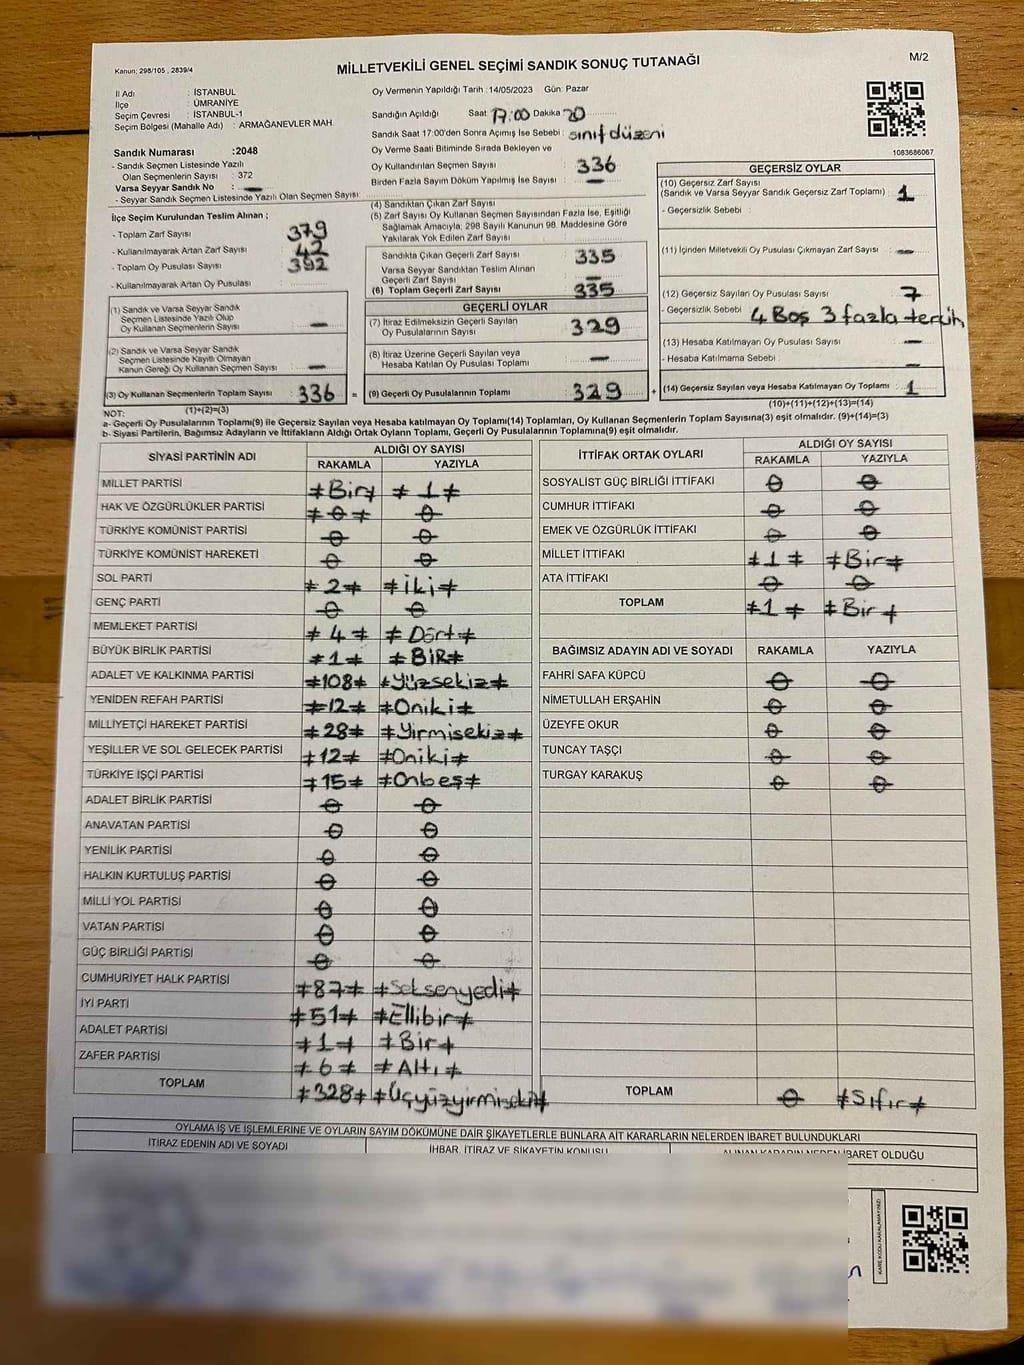 Kanun; 298/105 , 2839/4
MİLLETVEKİLİ GENEL SEÇİMİ SANDIK SONUÇ TUTANAĞI
M/2
İl Adı : İSTANBUL
İlçe : ÜMRANİYE
Seçim Çevresi : İSTANBUL-1
Seçim Bölgesi (Mahalle Adı) : ARMAĞANEVLER MAH.
Sandık Numarası :2048
- Sandık Seçmen Listesinde Yazılı
Olan Seçmenlerin Sayısı : 372
Varsa Seyyar Sandık No : —
- Seyyar Seçmen Listesinde Yazılı Olan Seçmen Sayısı:
Oy Vermenin Yapıldığı Tarih :14/05/2023 Gün: Pazar
Sandığın Açıldığı Saat 17:00 Dakika 20
Sandık Saat 17:00'den Sonra Açılmış İse Sebebi : sınıf düzeni
Oy Verme Saati Bitiminde Sırada Bekleyen ve
Oy Kullandırılan Seçmen Sayısı : 336
Birden Fazla Sayım Döküm Yapılmış İse Sayısı : —
1083686067
İlçe Seçim Kurulundan Teslim Alınan ;
- Toplam Zarf Sayısı : 379
- Kullanılmayarak Artan Zarf Sayısı : 42
- Toplam Oy Pusulası Sayısı : 392
- Kullanılmayarak Artan Oy Pusulası :
(1) Sandık ve Varsa Seyyar Sandık
Seçmen Listesinde Yazılı Olup
Oy Kullanan Seçmenlerin Sayısı : —
(2) Sandık ve Varsa Seyyar Sandık
Seçmen Listesinde Kayıtlı Olmayan
Kanun Gereği Oy Kullanan Seçmen Sayısı : —
(3) Oy Kullanan Seçmenlerin Toplam Sayısı : 336
(1)+(2)=(3)
(4) Sandıktan Çıkan Zarf Sayısı :
(5) Zarf Sayısı Oy Kullanan Seçmen Sayısından Fazla İse, Eşitliği
Sağlamak Amacıyla, 298 Sayılı Kanunun 98. Maddesine Göre
Yakılarak Yok Edilen Zarf Sayısı :
Sandıkta Çıkan Geçerli Zarf Sayısı : 335
Varsa Seyyar Sandıktan Teslim Alınan
Geçerli Zarf Sayısı : —
(6) Toplam Geçerli Zarf Sayısı : 335
GEÇERLİ OYLAR
(7) İtiraz Edilmeksizin Geçerli Sayılan
Oy Pusulalarının Sayısı : 329
(8) İtiraz Üzerine Geçerli Sayılan veya
Hesaba Katılan Oy Pusulası Toplamı : —
= (9) Geçerli Oy Pusulalarının Toplamı : 329 +
GEÇERSİZ OYLAR
(10) Geçersiz Zarf Sayısı
(Sandık ve Varsa Seyyar Sandık Geçersiz Zarf Toplamı) : 1
- Geçersizlik Sebebi :
(11) İçinden Milletvekili Oy Pusulası Çıkmayan Zarf Sayısı : —
(12) Geçersiz Sayılan Oy Pusulası Sayısı : 7
- Geçersizlik Sebebi : 4 Boş 3 fazla tercih
(13) Hesaba Katılmayan Oy Pusulası Sayısı : —
- Hesaba Katılmama Sebebi : —
(14) Geçersiz Sayılan veya Hesaba Katılmayan Oy Toplamı : 1
(10)+(11)+(12)+(13)=(14)
NOT:
a- Geçerli Oy Pusulalarının Toplamı(9) ile Geçersiz Sayılan veya Hesaba katılmayan Oy Toplamı(14) Toplamları, Oy Kullanan Seçmenlerin Toplam Sayısına(3) eşit olmalıdır. (9)+(14)=(3)
b- Siyasi Partilerin, Bağımsız Adayların ve İttifakların Aldığı Ortak Oyların Toplamı, Geçerli Oy Pusulalarının Toplamına(9) eşit olmalıdır.
SİYASİ PARTİNİN ADI ALDIĞI OY SAYISI
RAKAMLA YAZIYLA
MİLLET PARTİSİ ≠Bir≠ ≠1≠
HAK VE ÖZGÜRLÜKLER PARTİSİ ≠0≠ 0
TÜRKİYE KOMÜNİST PARTİSİ 0 0
TÜRKİYE KOMÜNİST HAREKETİ 0 0
SOL PARTİ ≠2≠ ≠İki≠
GENÇ PARTİ 0 0
MEMLEKET PARTİSİ ≠4≠ ≠Dört≠
BÜYÜK BİRLİK PARTİSİ ≠1≠ ≠BİR≠
ADALET VE KALKINMA PARTİSİ ≠108≠ ≠Yüzsekiz≠
YENİDEN REFAH PARTİSİ ≠12≠ ≠Oniki≠
MİLLİYETÇİ HAREKET PARTİSİ ≠28≠ ≠Yirmisekiz≠
YEŞİLLER VE SOL GELECEK PARTİSİ ≠12≠ ≠Oniki≠
TÜRKİYE İŞÇİ PARTİSİ ≠15≠ ≠Onbeş≠
ADALET BİRLİK PARTİSİ 0 0
ANAVATAN PARTİSİ 0 0
YENİLİK PARTİSİ 0 0
HALKIN KURTULUŞ PARTİSİ 0 0
MİLLİ YOL PARTİSİ 0 0
VATAN PARTİSİ 0 0
GÜÇ BİRLİĞİ PARTİSİ 0 0
CUMHURİYET HALK PARTİSİ ≠87≠ ≠Seksenyedi≠
İYİ PARTİ ≠51≠ ≠Ellibir≠
ADALET PARTİSİ ≠1≠ ≠Bir≠
ZAFER PARTİSİ ≠6≠ ≠Altı≠
TOPLAM ≠328≠ ≠Üçyüzyirmisekiz≠
İTTİFAK ORTAK OYLARI ALDIĞI OY SAYISI
RAKAMLA YAZIYLA
SOSYALİST GÜÇ BİRLİĞİ İTTİFAKI 0 0
CUMHUR İTTİFAKI 0 0
EMEK VE ÖZGÜRLÜK İTTİFAKI 0 0
MİLLET İTTİFAKI ≠1≠ ≠Bir≠
ATA İTTİFAKI 0 0
TOPLAM ≠1≠ ≠Bir≠
BAĞIMSIZ ADAYIN ADI VE SOYADI RAKAMLA YAZIYLA
FAHRİ SAFA KÜPCÜ 0 0
NİMETULLAH ERŞAHİN 0 0
ÜZEYFE OKUR 0 0
TUNCAY TAŞÇI 0 0
TURGAY KARAKUŞ 0 0
TOPLAM 0 ≠Sıfır≠
OYLAMA İŞ VE İŞLEMLERİNE VE OYLARIN SAYIM DÖKÜMÜNE DAİR ŞİKAYETLERLE BUNLARA AİT KARARLARIN NELERDEN İBARET BULUNDUKLARI
İTİRAZ EDENİN ADI VE SOYADI İHBAR, İTİRAZ VE ŞİKAYETİN KONUSU ALINAN KARARIN NEDEN İBARET OLDUĞU
KARE KODU KARALAMAYINIZ!